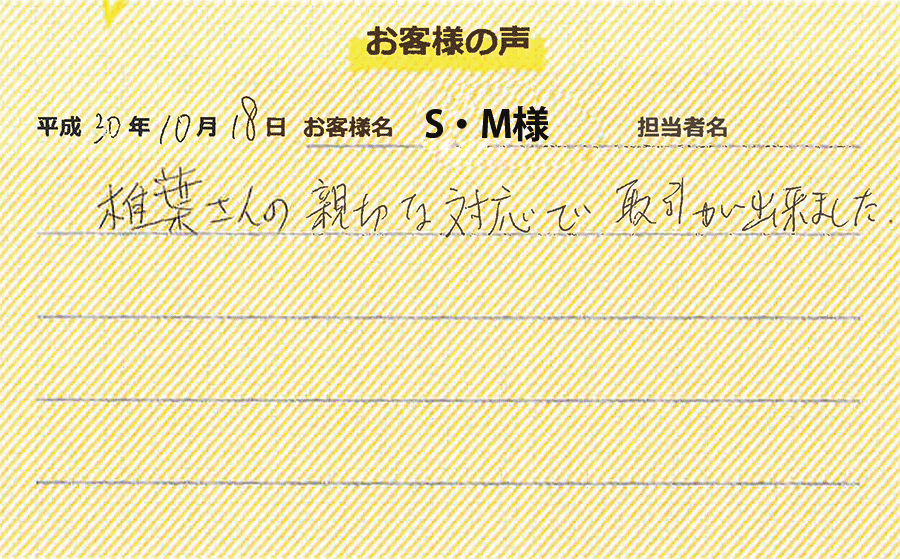 お客様の声
平成30年10月18日 お客様名 S・M様 担当者名
椎葉さんの親切な対応で取引が出来ました